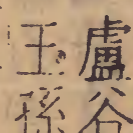 盧谷
王孫